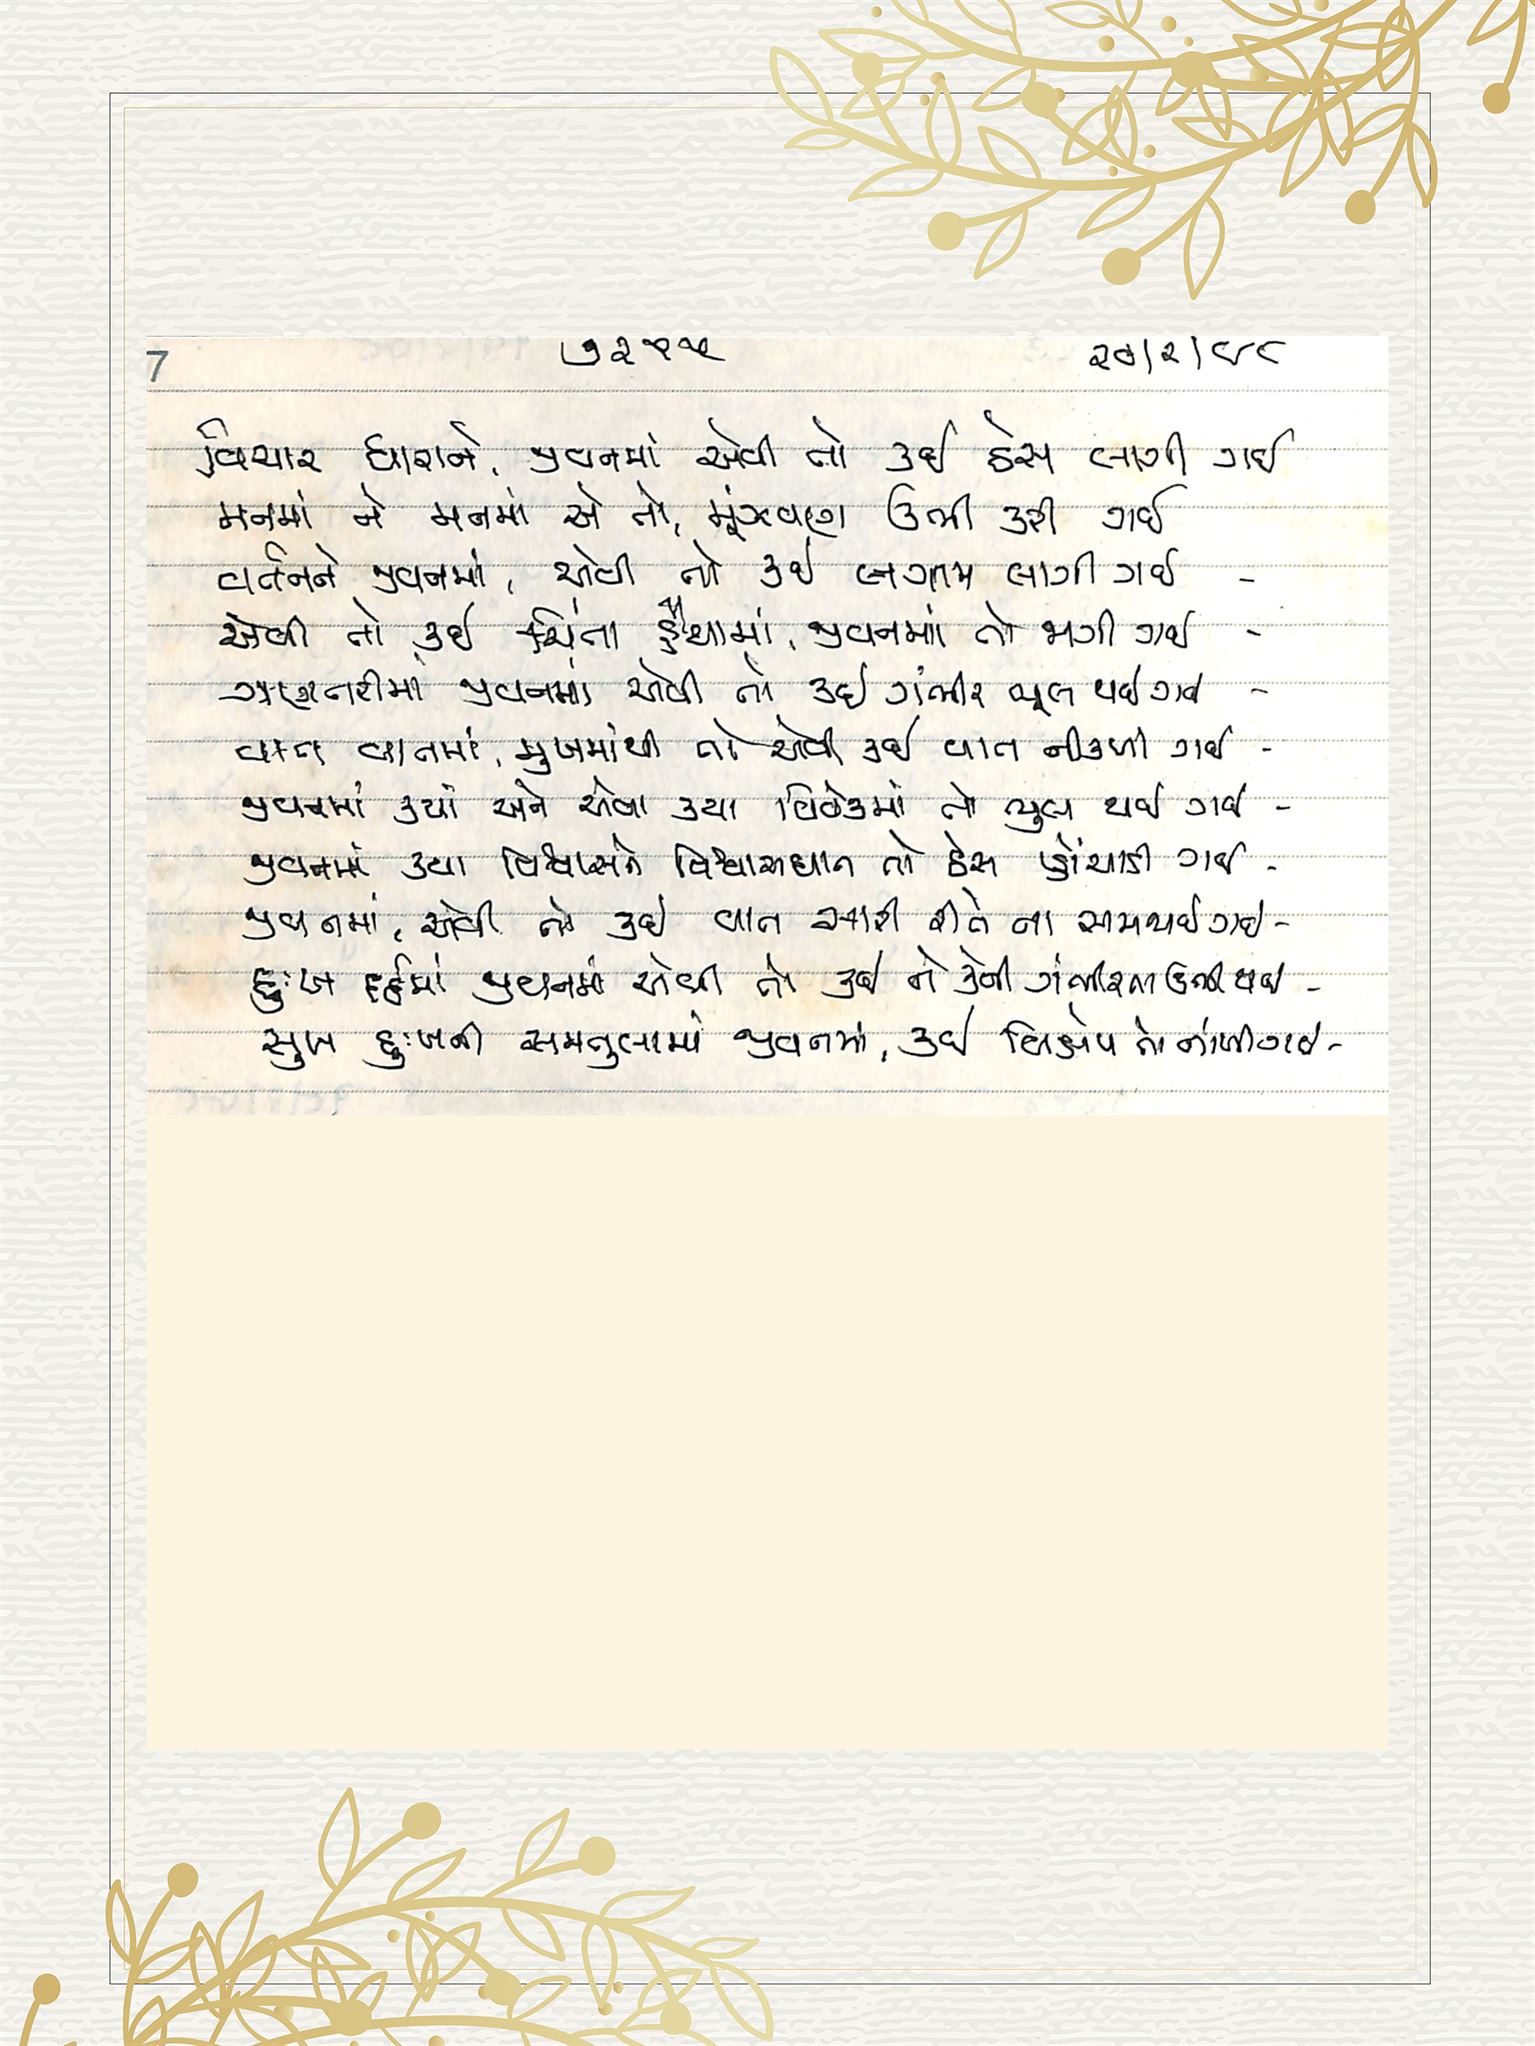 7 ૭૨૫૫ ૨૭/૨/૯૮
વિચાર ધારાને, જીવનમાં એવી તો કઈ ઠેસ લાગી ગઈ
મનમાં ને મનમાં એ તો, મૂંઝવણ ઉભી કરી ગઈ
વર્તનને જીવનમાં, એવી તો કઈ લગામ લાગી ગઈ -
એવી તો કઈ ચિંતા હૈયામાં, જીવનમાં તો જાગી ગઈ -
ગણતરીમાં જીવનમાં એવી તો કઈ ગંભીર ભૂલ થઈ ગઈ -
વાત વાતમાં, મુખમાંથી તો એવી કઈ વાત નીકળી ગઈ -
જીવનમાં ક્યાં અને એવા કયા વિવેકમાં તો ભુલ થઈ ગઈ -
જીવનમાં કયા વિશ્વાસને વિશ્વાસઘાત તો ઠેસ પ્હોંચાડી ગઈ -
જીવનમાં, એવી તો કઈ વાત સારી રીતે ના થઈ ગઈ -
દુઃખ દર્દમાં જીવનમાં એવી તો કઈ ને કેવી ગંભીરતા ઉભી થઈ -
સુખ દુઃખની સમતુલામાં જીવનમાં, કઈ વિક્ષેપ તો નાંખી ગઈ -